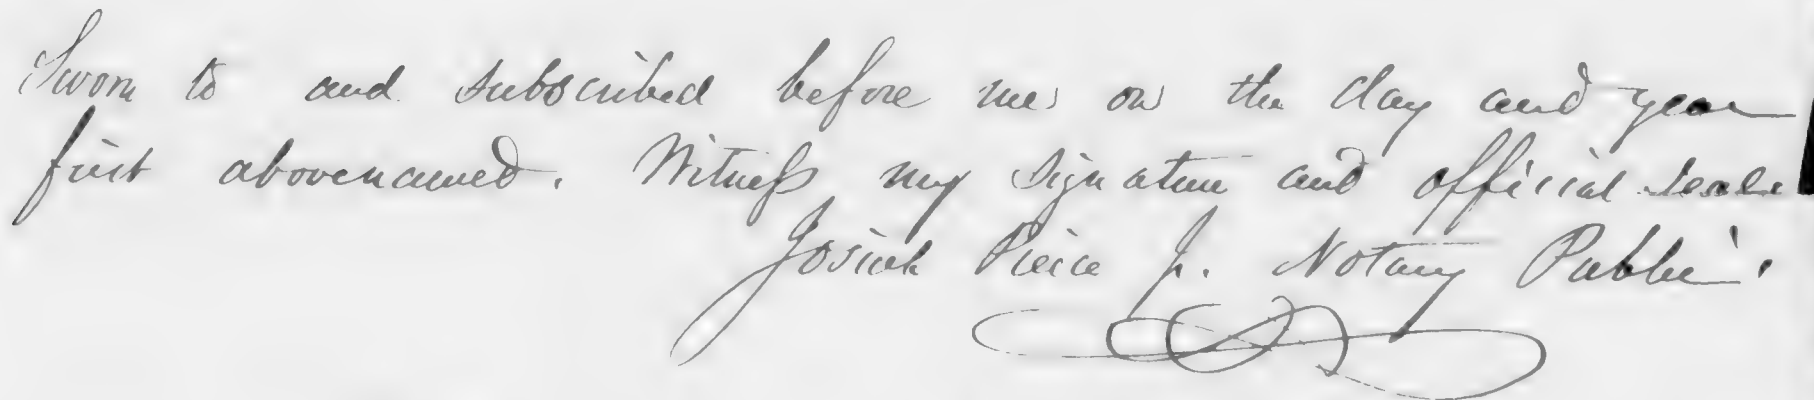 Sworn to and subscribed before me on the day and year
first abovenamed. Witness my signature and official seale
Josiah Pierce Jr. Notary Public.